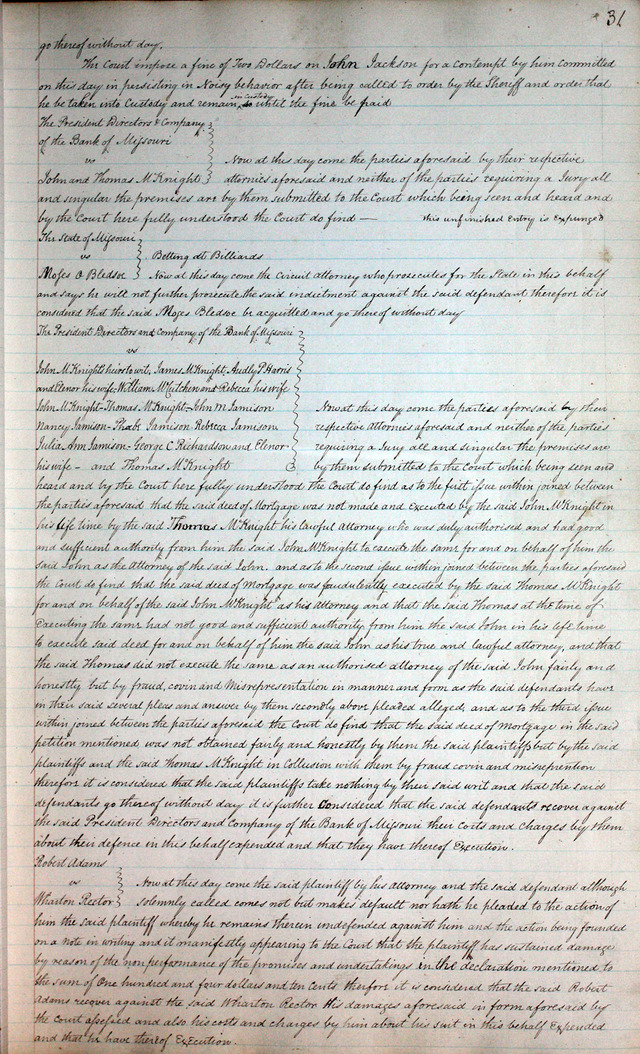 31
go thereof without day.
The Court impose a fine of Two Dollars on John Jackson for a contempt by him committed
on this day in persisting in Noisy behavior after being called to order by the Sheriff and order that
he be taken into Custody and remain in custody until the fine be paid
The President Directors & Company
of the Bank of Missouri
vs Now at this day come the parties aforesaid by their respective
John and Thomas McKnight attornies aforesaid and neither of the parties requiring a Jury all
and singular the premises are by them submitted to the Court which being seen and heard and
by the Court here fully understood the Court do find — this unfinished Entry is Expunged
The State of Missouri
vs Betting at Billiards
Moses O Bledsoe Now at this day come the Circuit attorney who prosecutes for the State in this behalf
and says he will not further prosecute the said indictment against the said defendant therefore it is
considered that the said Moses Bledsoe be acquitted and go thereof without day
The President Directors and Company of the Bank of Missouri
vs
John McKnights heirs to wit, James McKnight, Audly P Harris
and Elenor his wife, William McCutchen and Rebecca his wife
John McKnight - Thomas McKnight - John M Jamison Now at this day come the parties aforesaid by their
Nancy Jamison - Phebe Jamison Rebecca Jamison respective attornies aforesaid and neither of the parties
Julia Ann Jamison - George C Richardson and Elenor requiring a Jury all and singular the premises are
his wife - and Thomas McKnight by them submitted to the Court which being seen and
heard and by the Court here fully understood the Court do find as to the first issue within joined between
the parties aforesaid that the said deed of Mortgage was not made and executed by the said John McKnight in
his life time by the said Thomas McKnight his lawful Attorney who was duly authorised and had good
and sufficient authority from him the said John McKnight to execute the same for and on behalf of him the
said John as the Attorney of the said John, and as to the second issue within joined between the parties aforesaid
the Court do find that the said deed of Mortgage was fraudulently executed by the said Thomas McKnight
for and on behalf of the said John McKnight as his attorney and that the said Thomas at the time of
Executing the same had not good and sufficient authority from him the said John in his life time
to execute said deed for and on behalf of him the said John as his true and lawful attorney, and that
the said Thomas did not execute the same as an authorised attorney of the said John fairly and
honestly but by fraud, covin and Misrepresentation in manner and form as the said defendants have
in their said several pleas and answer by them secondly above pleaded alleged, and as to the third issue
within joined between the parties aforesaid the Court do find that the said deed of Mortgage in the said
petition mentioned was not obtained fairly and honestly by them the said plaintiffs but by the said
plaintiffs and the said Thomas McKnight in Collusion with them by fraud covin and misreprention
therefore it is considered that the said plaintiffs take nothing by their said writ and that the said
defendants go thereof without day it is further Considered that the said defendants recover against
the said President Directors and Company of the Bank of Missouri their costs and charges by them
about their defence in this behalf expended and that they have thereof Execution.
Robert Adams
vs Now at this day come the said plaintiff by his Attorney and the said defendant although
Wharton Rector solemnly called comes not but makes default nor hath he pleaded to the action of
him the said plaintiff whereby he remains therein undefended against him and the action being founded
on a note in writing and it manifestly appearing to the Court that the plaintiff has sustained damage
by reason of the non performance of the promises and undertakings in the declaration mentioned to
the sum of One hundred and four dollars and ten Cents therefore it is considered that the said Robert
Adams recover against the said Wharton Rector His damages aforesaid in form aforesaid by
the Court assessed and also his costs and charges by him about his suit in this behalf Expended
and that he have thereof Execution.